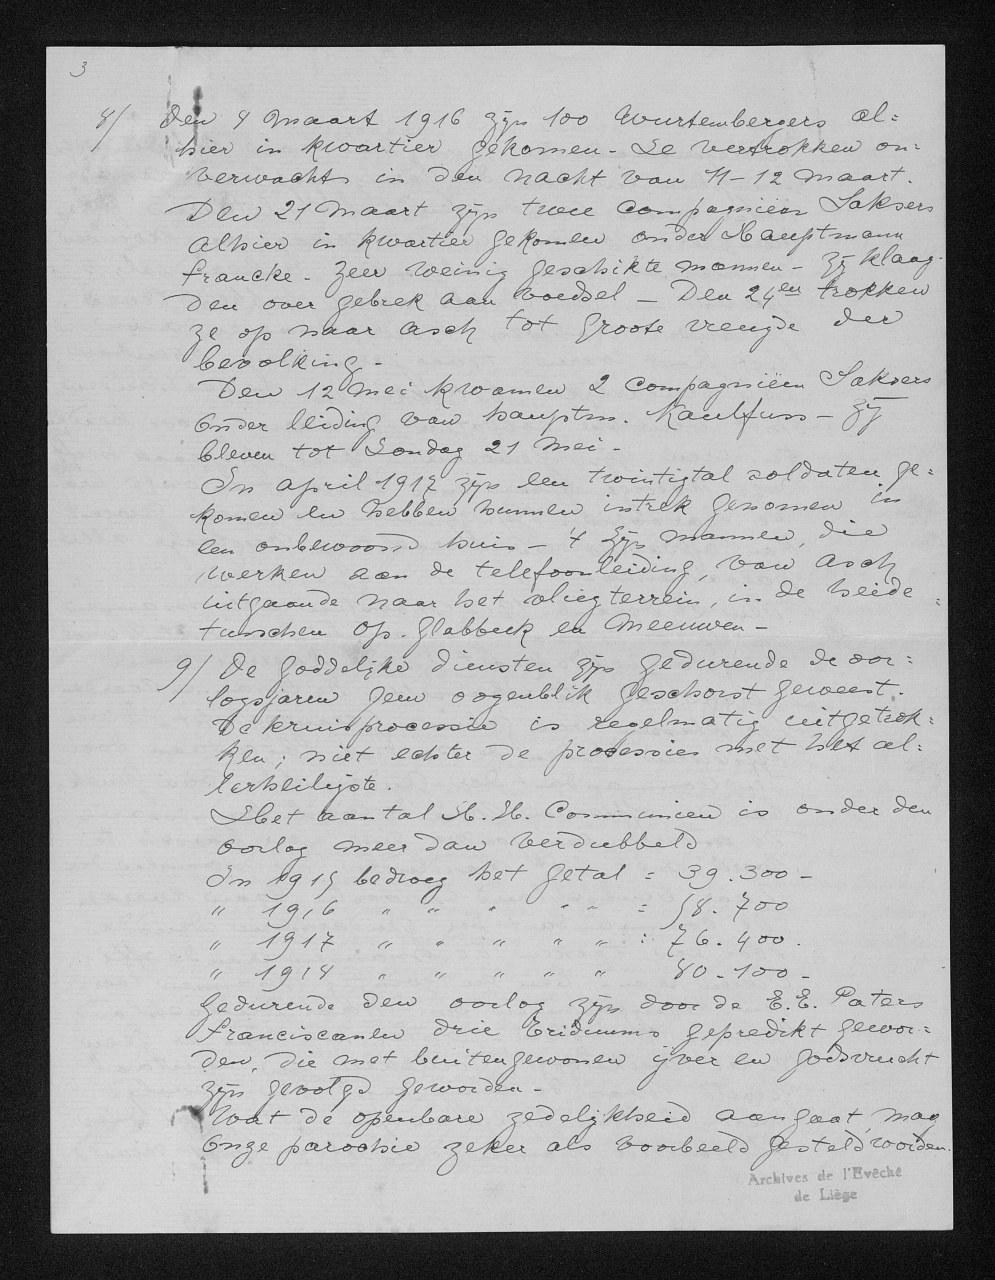 3
8/ Den 8 Maart 1916 zijn 100 Wurtembergers al=
hier in kwartier gekomen - Ze vertrokken on=
verwachts in den nacht van 11-12 maart.
Den 21 Maart zijn twee compagnieën Saksers
alhier in kwartier gekomen onder Hauptmann
Francke - zeer weinig geschikte mannen - zij klaag-
den over gebrek aan voedsel - Den 24en trokken
ze op naar Asch tot groote vreugde der
bevolking -
Den 12 Mei kwamen 2 compagnieën Saksers
onder leiding van hauptm. Kaulfuss - zij
bleven tot Zondag 21 Mei -
In april 1917 zijn een twintigtal soldaten ge=
komen en hebben hunnen intrek genomen in
een onbewoond huis - 't zijn mannen, die
werken aan de telefoonleiding, van Asch
uitgaande naar het vliegterrein, in de heide
tusschen Op-Glabbeek en Meeuwen -
9/ De goddelijke diensten zijn gedurende de oor=
logsjaren geen oogenblik geschorst geweest.
De kruisprocessie is regelmatig uitgetrok=
ken; niet echter de processies met het al=
lerheiligste.
Het aantal H. H. Communien is onder den
oorlog meer dan verdubbeld
In 1915 bedroeg het getal = 39.300 -
" 1916 " " " " " = 58.700
" 1917 " " " " " : 76.400.
" 1918 " " " " " 80.100 -
Gedurende den oorlog zijn door de E.E. Paters
Franciscanen drie Triduums gepredikt gewor=
den, die met buitengewonen ijver en godsvrucht
zijn gevolgd geworden -
Wat de openbare zedelijkheid aangaat, mag
onze parochie zeker als voorbeeld gesteld worden.
Archives de l'Evêché
de Liège